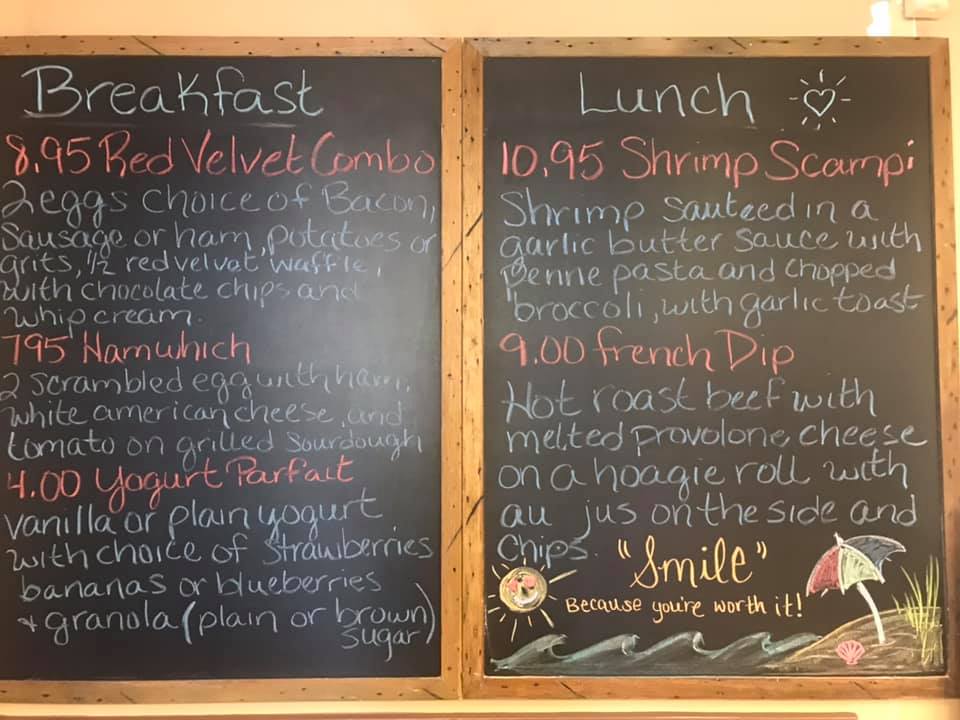 Breakfast
8.95 Red Velvet Combo
2 eggs choice of Bacon,
Sausage or ham, potatoes or
grits, 1/2 red velvet waffle,
with chocolate chips and
whip cream.
795 Hamwhich
2 scrambled egg with ham,
white american cheese, and
tomato on grilled sourdough
4.00 Yogurt Parfait
vanilla or plain yogurt
with choice of strawberries
bananas or blueberries
+ granola (plain or brown
sugar)
Lunch
10.95 Shrimp Scampi
Shrimp sauteed in a
garlic butter sauce with
penne pasta and chopped
broccoli, with garlic toast
9.00 french Dip
Hot roast beef with
melted provolone cheese
on a hoagie roll with
au jus on the side and
chips.
"Smile"
Because you're worth it!